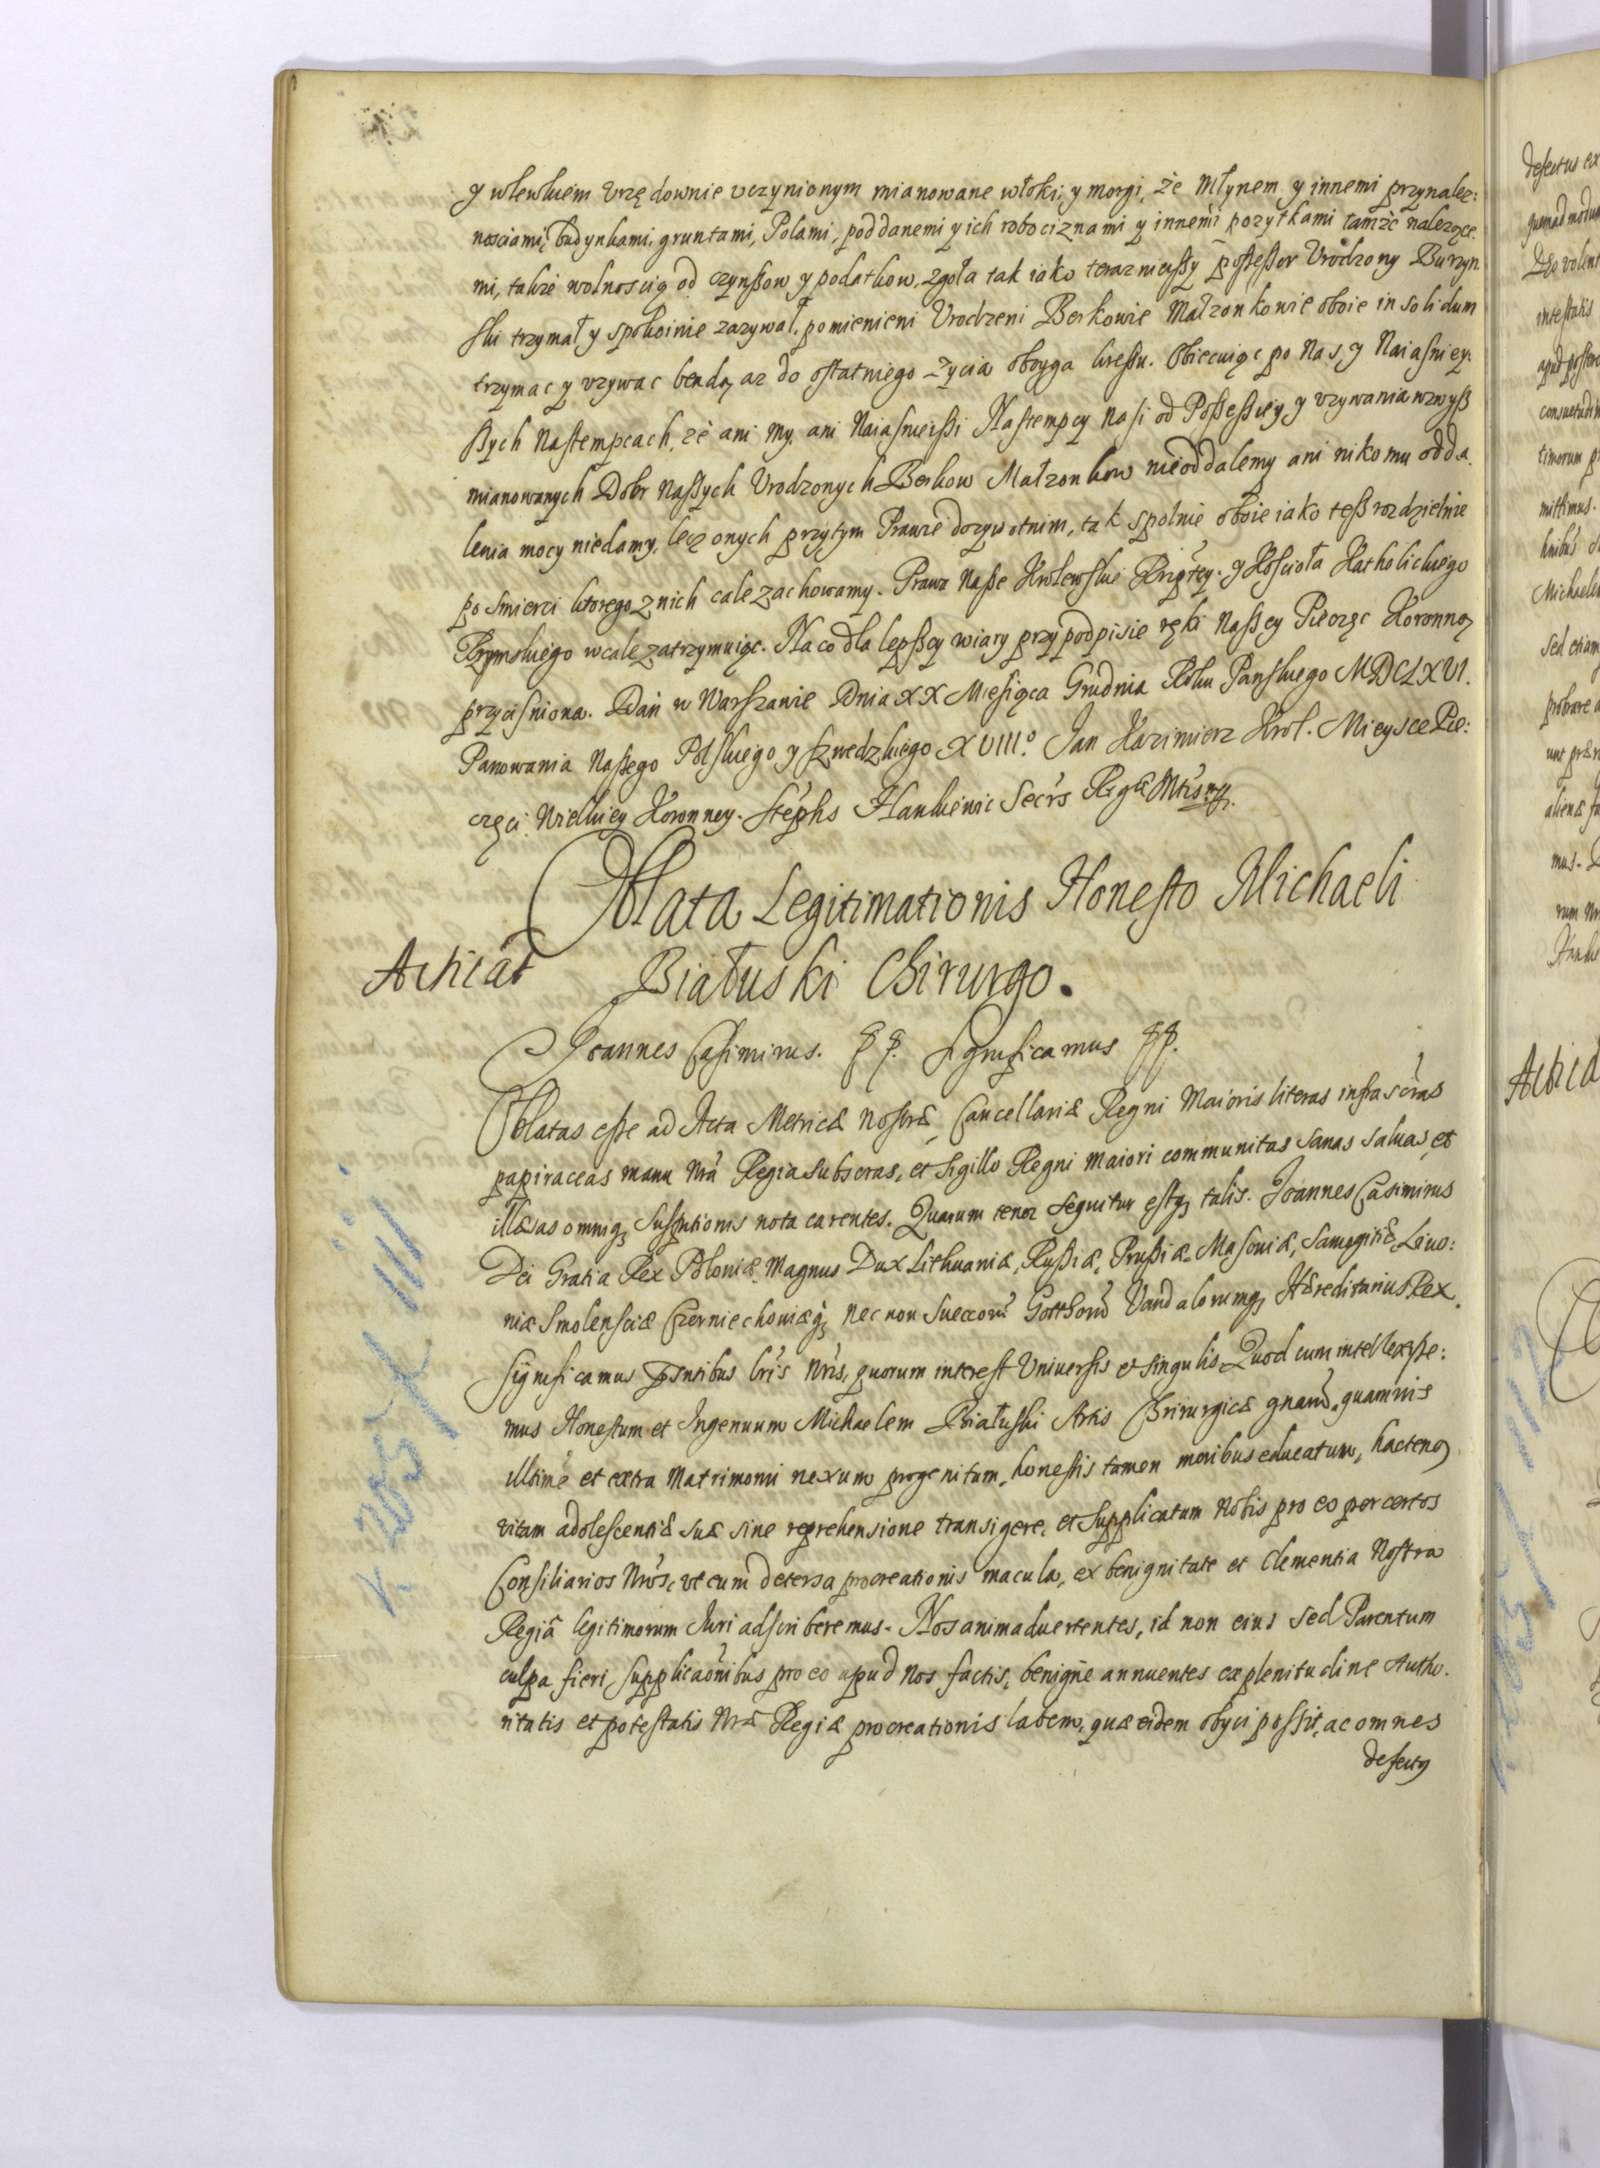 y wlewkiem Vrzędownie vczynionym mianowane włoki, y morgi, że Młynem y innemi przynalez:
nosciami, budynkami, gruntami, Polami, poddanemi y ich robociznami y innemi pozytkami tamże nalezące
mi, także wolnoscią od czynßow y podatkow, zgoła tak iako teraznieyßy poßeßor Vrodzony Burzyn
ski trzymał y spokoinie zazywał, pomienieni Vrodzeni Berkowie Małzonkowie oboie in solidum
trzymac y vzywac będą, az do ostatniego zycia oboyga kreßu. Obiecuiąc po Nas, y Naiasniey:
ßych Nastempcach, że ani My, ani Naiasnieyßi Nastempcy Nasi od Poßeßiey, y vzywania wzwyß
mianowanych Dobr Naßych Vrodzonych Berkow Małzonkow nieoddalemy ani nikomu odda
lenia mocy niedamy, lecz onych przytym Prawie dozywotnim, tak spolnie oboie iako teß rozdzielnie
po smierci ktorego znich cale zachowamy. Prawa Naße Krolewskie Rzipltey. y Kościoła Katholickiego
Rzymskiego wcale zatrzymuiąc. Na co dla lepßey wiary przy podpisie ręki Naßey Pieczęc Koronną
przycisniona. Dan w Warszawie Dnia XX Miesiąca Grudnia Roku Panskiego MDCLXVI.
Panowania Naßego Polskiego y Szwedzkiego XVIII.º Jan Kazimierz Krol. Mieysce Pie:
częci Wielkiey Koronney. Stephs Hankiewic Secrs Regiæ Mttis mp.
Oblata Legitimationis Honesto Michaeli
Acticat
Białuski Chirurgo.
Joannes Casimirus. pp. Significamus pp.
Oblatas esse ad Acta Metricæ Nostræ Cancellariæ Regni Maioris literas infrascras
papiraceas manu Nra Regia subscras, et Sigillo Regni maiori communitas sanas saluas, et
illæsas omniq; suspitionis nota carentes. Quarum tenor sequitur estq; talis. Joannes Casimirus
Dei Gratia Rex Poloniæ, Magnus Dux Lithuaniæ, Rußiæ, Prußiæ, Masoviæ, Samogitiæ, Livo:
niæ Smolensciæ Czerniechoviæq; nec non Suecorũ Gotthorũ Vandalorumq; Hæreditarius Rex.
Significamus Pntibus lris Nris, quorum interest Universis et singulis Quod cum intellexisse:
mus Honestum et Ingenuum Michaelem Białuski Artis Chirurgicæ gnarũ, quamvis
illtime et extra Matrimonii nexum progenitum, honestis tamen moribus educatum, hactenq
vitam adolescentiæ suæ sine reprehensione transigere, et Supplicatum Nobis pro eo per certos
Consiliarios Nros, vt eum detersa procreationis macula, ex benignitate et Clementia Nostra
Regiâ legitimorum Iuri adscriberemus. Nos animaduertentes, id non eius sed Parentum
culpa fieri, supplicaonibus pro eo apud Nos factis, benigne annuentes ex plenitudine Autho.
ritatis et potestatis Nræ Regiæ procreationis labem, quæ eidem obyci possit, ac omnes
defectq